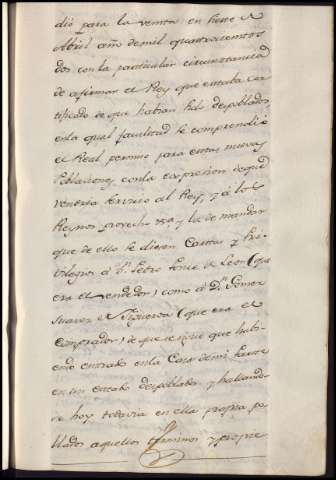 dió para la venta en siete de
Abril año de mil quatrocientos
dos con la particular circunstancia
de afirmar el Rey que estaba cer
tificado de que habian sido despoblados
en la qual facultad se comprendió
el Real permiso para estas nuevas
Poblaciones con la expresion de que
venia servicio al Rey, y á los
Reynos provecho y la de mandar
que de ello se diesen Cartas y Pri
vilegios á Dn. Pedro Ponce de Leon (que
era el vendedor) como á Dn. Gomez
Suarez de Figueroa (que era el
comprador) de que se sigue que habi
endo entrado en la Casa de mi parte
en un estado despoblado y hallando
se hoy todavia en ella propia po
blados aquellos terminos y propie